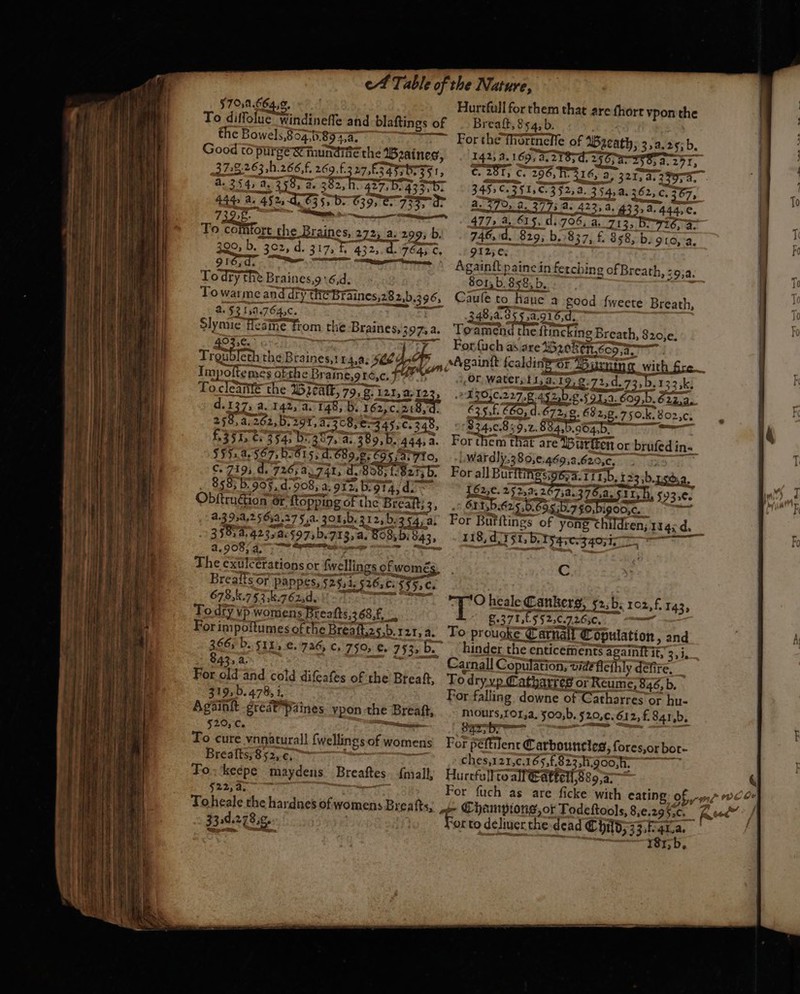 A Table of the Nature,
570,a.664,g.
To dissolue windinesse and blastings of
the Bowels,804,b.893,a.
Good to purge & mundifie the Braines,
37,g.263,h.266,f. 269.f.327,f.345,b.351,
a. 354, a, 358, a. 382, h. 427, b. 433, b.
444, a. 452, d, 635, b. 639, e. 733, d.
739,g.
To comfort the Braines, 272, a. 299, b.
300, b. 302, d. 317, f. 432, d. 764, c,
916,d.
To dry the Braines,916,d.
To warme and dry the Braines,282,b,396,
a. 531,a.764,c.
Slymie fleame from the Braines,397,a.
403,e.
Troubleth the Braines,114,a;
Impostemes of the Braine,916,c.
To cleanse the Breast, 79, g. 121, a. 123,
d. 137, a. 142, a. 148, b. 162, c. 218, d.
258, a. 262, b. 291, a. 308, e. 345, c. 348,
f. 351, e. 354, b. 387, a. 389, b. 444, a.
555, a. 567, b. 615, d. 689, g. 695, a. 710,
c. 719, d. 726, a. 741, d. 808, f. 821, b.
858, b. 905, d. 908, a, 912, b. 914, d.
Obstruction or stopping of the Breast, 3,
a.39,a,256,a.275,a. 301,b. 312,b.354,a.
358, a. 423, a. 597, b. 713, a, 808, b. 843,
a, 908, a,
The exulcerations or swellings of womēs,
Breasts or pappes, 525, i. 526, c. 555, c.
678,k.753,k.762,d.
To dry vp womens Breasts,368,f.
For impostumes of the Breast,25,b.121, a.
366, b. 511, e. 726, c, 750, e. 753, b.
843, a.
For old and cold diseases of the Breast,
319, b. 478, i.
Against great paines vpon the Breast,
520, c.
To cure vnnaturall swellings of womens
Breasts, 852, c,
To keepe maydens Breastes small,
522, a.
To heale the hardnes of womens Breasts,
33,d.278,g.
Hurtfull for them that are short vpon the
Breast, 854, b.
For the shortnesse of Breath, 3,a.25, b.
142, a. 169, a. 218, d. 256, a. 258, a. 291,
c. 281, c. 296, h. 316, a, 321, a. 339, a.
345, c. 351, c. 352, a. 354, a. 362, c. 367,
a. 370, a. 377, a. 423, a. 433, a. 444, c.
477, a, 615, d. 706, a. 713, b. 726, a.
746, d. 829, b. 837, f. 858, b. 910, a,
912, c.
Against paine in fetching of Breath, 39,a.
801, b. 858, b.
Cause to haue a good sweete Breath,
348,a.855,a.916,d.
To amend the stincking Breath, 820,e,
For such as are Broken,609,a,
Against scalding or Burning with fire
or water, 11, a. 19, g. 72, d. 73, b. 133, k.
130,c.227,g.452,b.g.591,a.609,b.622,a.
635,f. 660, d. 672, g. 682,g.750.k.802,c.
834,c.859,z. 884,b.904.b.
For them that are Bursten or brused in-
wardly.380,e.469,a.620,c,
For all Burstings,96,a. 111,b, 123,b.180,a,
162,c. 252,a.267,a.376,a, 511, h, 593,c.
611,b.625,b.695,b.750,b,900,c.
For Burstings of yong children, 114, d.
118, d, 151, b. 154,c.340,i,
C.
TO heale Cankers, 52,b, 102,f.143,
g.371,f.552,c.726,c.
To prouoke Carnall Copulation, and
hinder the enticements against it, 3, i,
Carnall Copulation, vide fleshly desire.
To dry vp Catharres or Reume, 846, b.
For falling downe of Catharres or hu-
mours,101,a. 509,b. 520,c. 612, f. 841,b.
842, b.
For pestilent Carbouncles, sores, or bot-
ches,121,c.165,f.823,h.900,h.
Hurtfull to all Cattell,889,a.
For such as are sicke with eating of
Champions, or Todestools, 8,e.295,c.
For to deliuer the dead Child, 33,f. 41,a.
181,b,